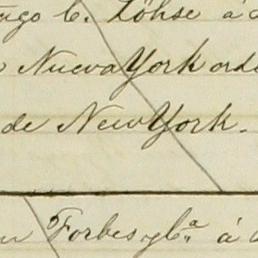 C. Lohse á
Nueva York ord
de New York.
Forbes y Cª. á